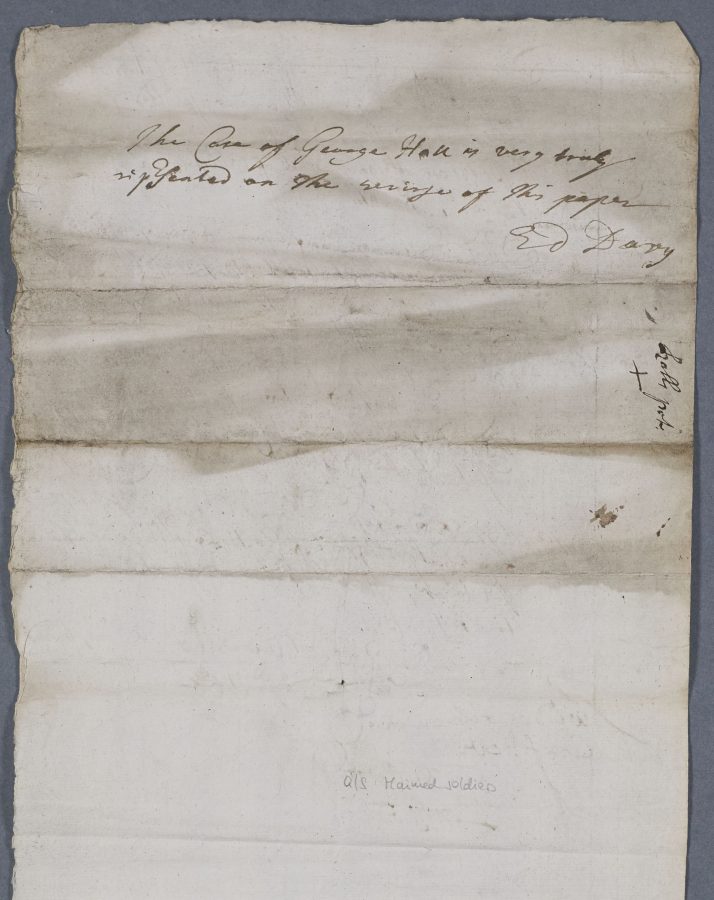 The Case of George Hall is very truly
rip'sented on the reverse of this paper
Ed Davy
Halls pet
+
Q/S Maimed soldiers